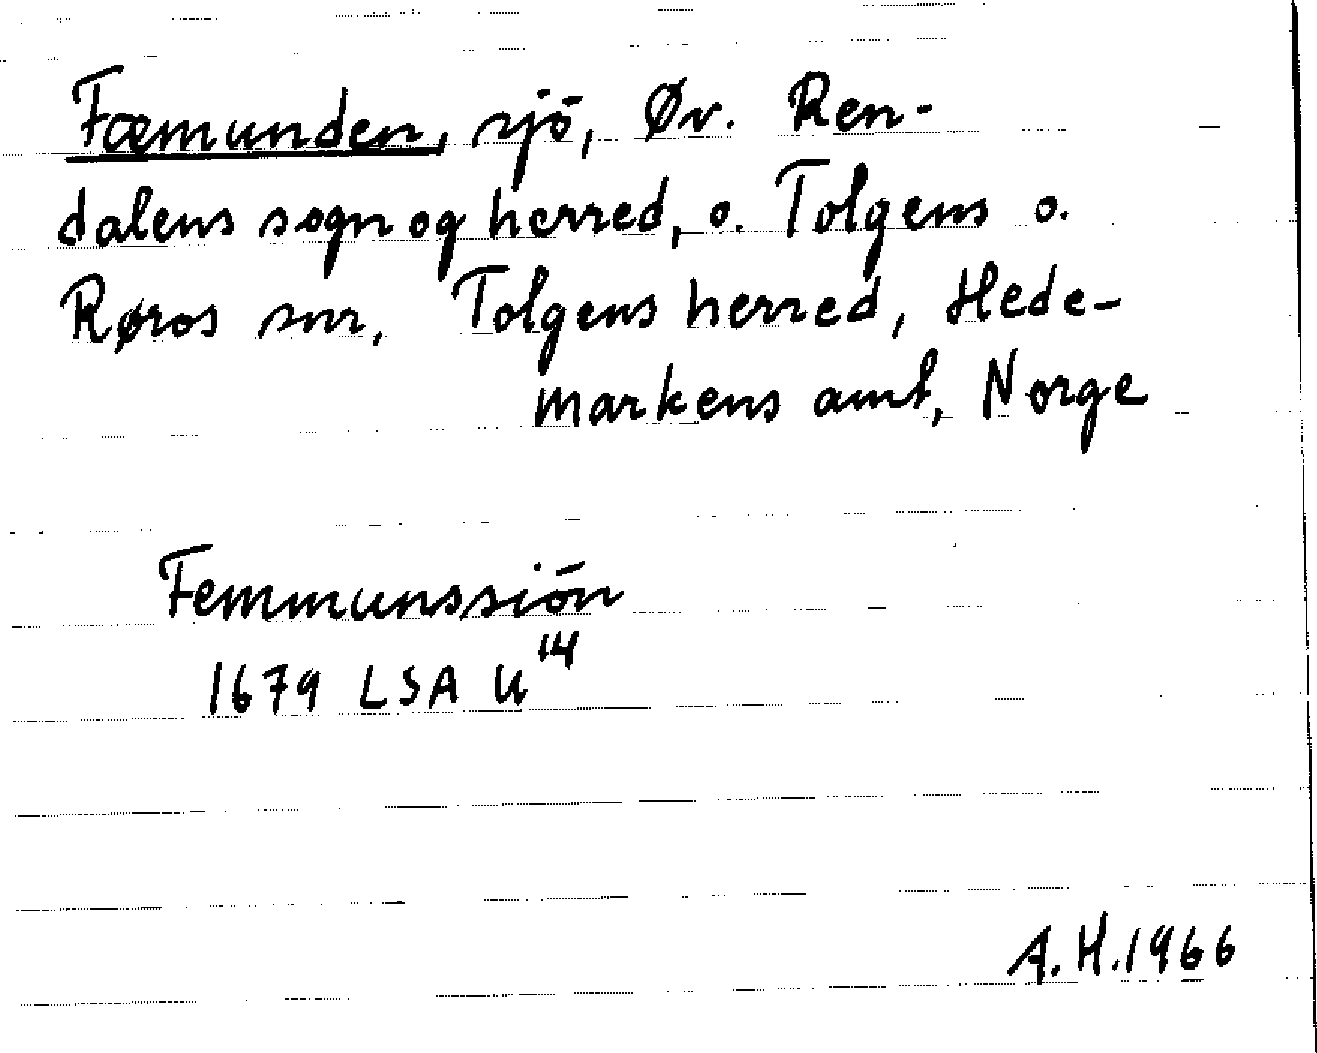 Fæmunden, sjö, Øv. Ren-
dalens sogn og herred, o. Tolgens o.
Røros snr, Tolgens herred, Hede-
markens amt, Norge
Femmunssiön
1679 LSA U 14
A.H.1966